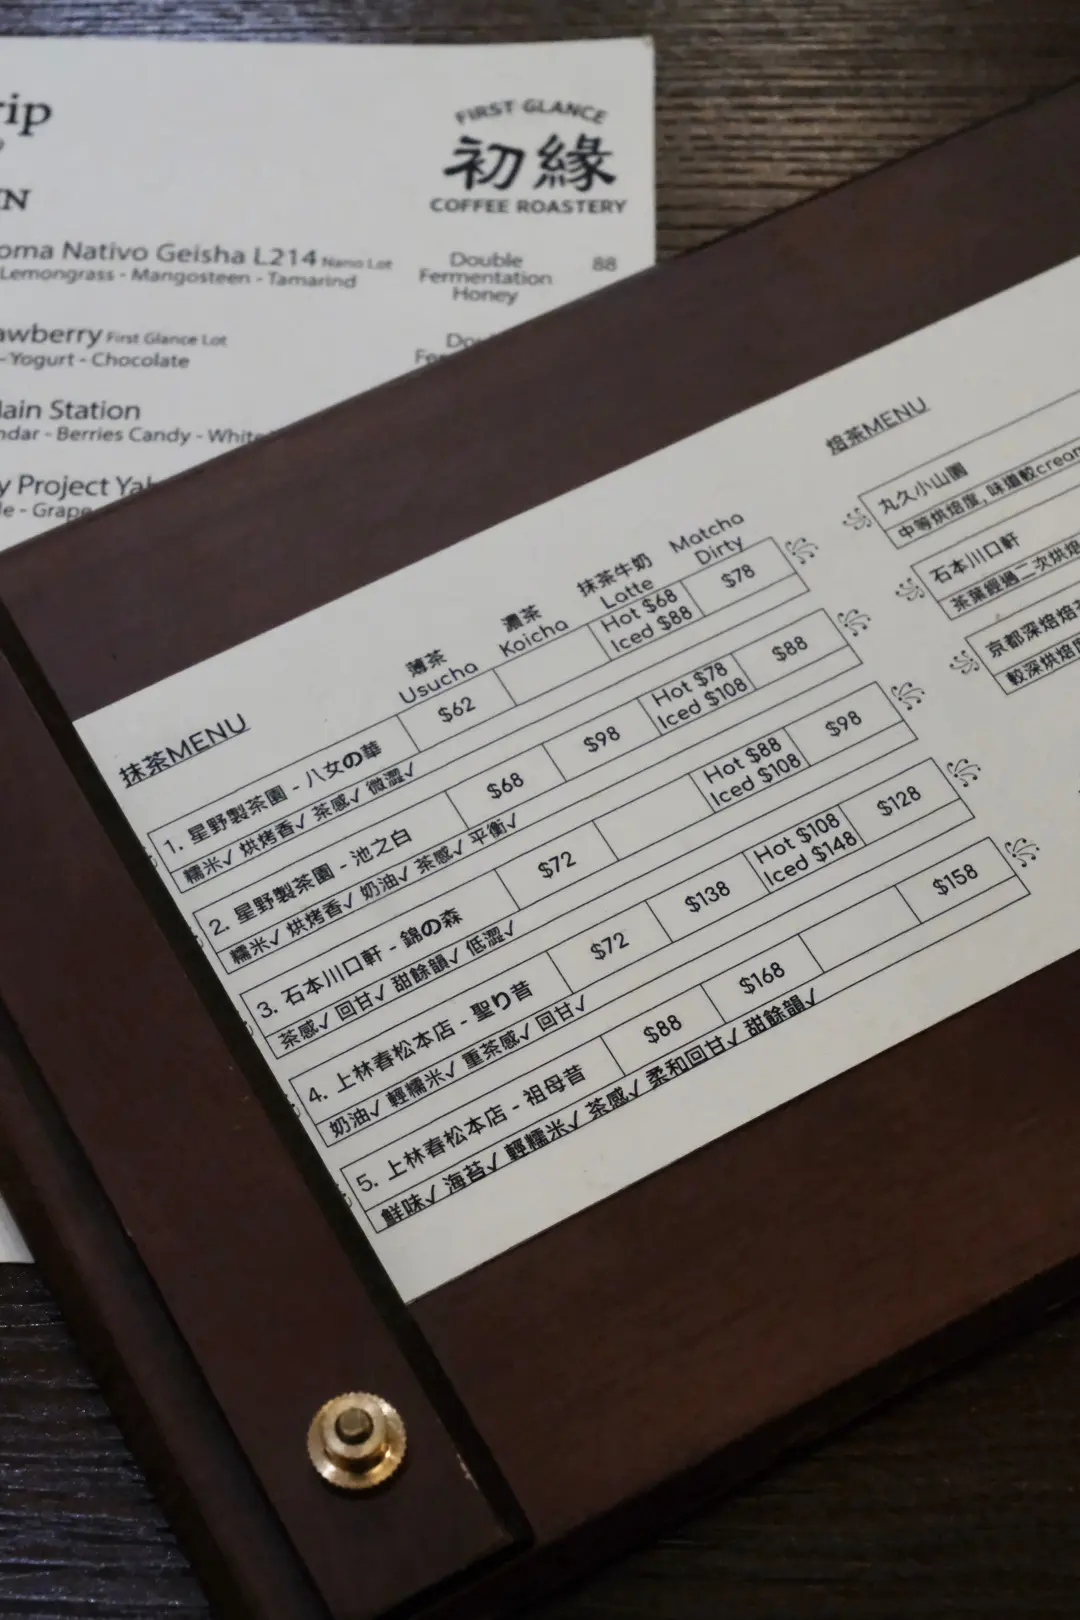 rip
IN
FIRST GLANCE
初緣
COFFEE ROASTERY
oma Nativo Geisha L214 Nano Lot
Lemongrass - Mangosteen - Tamarind
Double
Fermentation
Honey
88
awberry First Glance Lot
- Yogurt - Chocolate
Dou
Fer
lain Station
ndar - Berries Candy - White
y Project Ya
le - Grape
抹茶MENU
薄茶
Usucha
濃茶
Koicha
抹茶牛奶
Latte
Matcha
Dirty
1. 星野製茶園 - 八女の華
$62
Hot $68
Iced $88
$78
糯米✓ 烘烤香✓ 茶感✓ 微澀✓
2. 星野製茶園 - 池之白
$68
$98
Hot $78
Iced $108
$88
糯米✓ 烘烤香✓ 奶油✓ 茶感✓ 平衡✓
3. 石本川口軒 - 錦の森
$72
Hot $88
Iced $108
$98
茶感✓ 回甘✓ 甜餘韻✓ 低澀✓
4. 上林春松本店 - 聖り昔
$72
$138
Hot $108
Iced $148
$128
奶油✓ 輕糯米✓ 重茶感✓ 回甘✓
5. 上林春松本店 - 祖母昔
$88
$168
$158
鮮味✓ 海苔✓ 輕糯米✓ 茶感✓ 柔和回甘✓ 甜餘韻✓
焙茶MENU
丸久小山園
中等烘焙度, 味道較cream
石本川口軒
茶葉經過二次烘焙
京都深焙焙茶
較深烘焙度